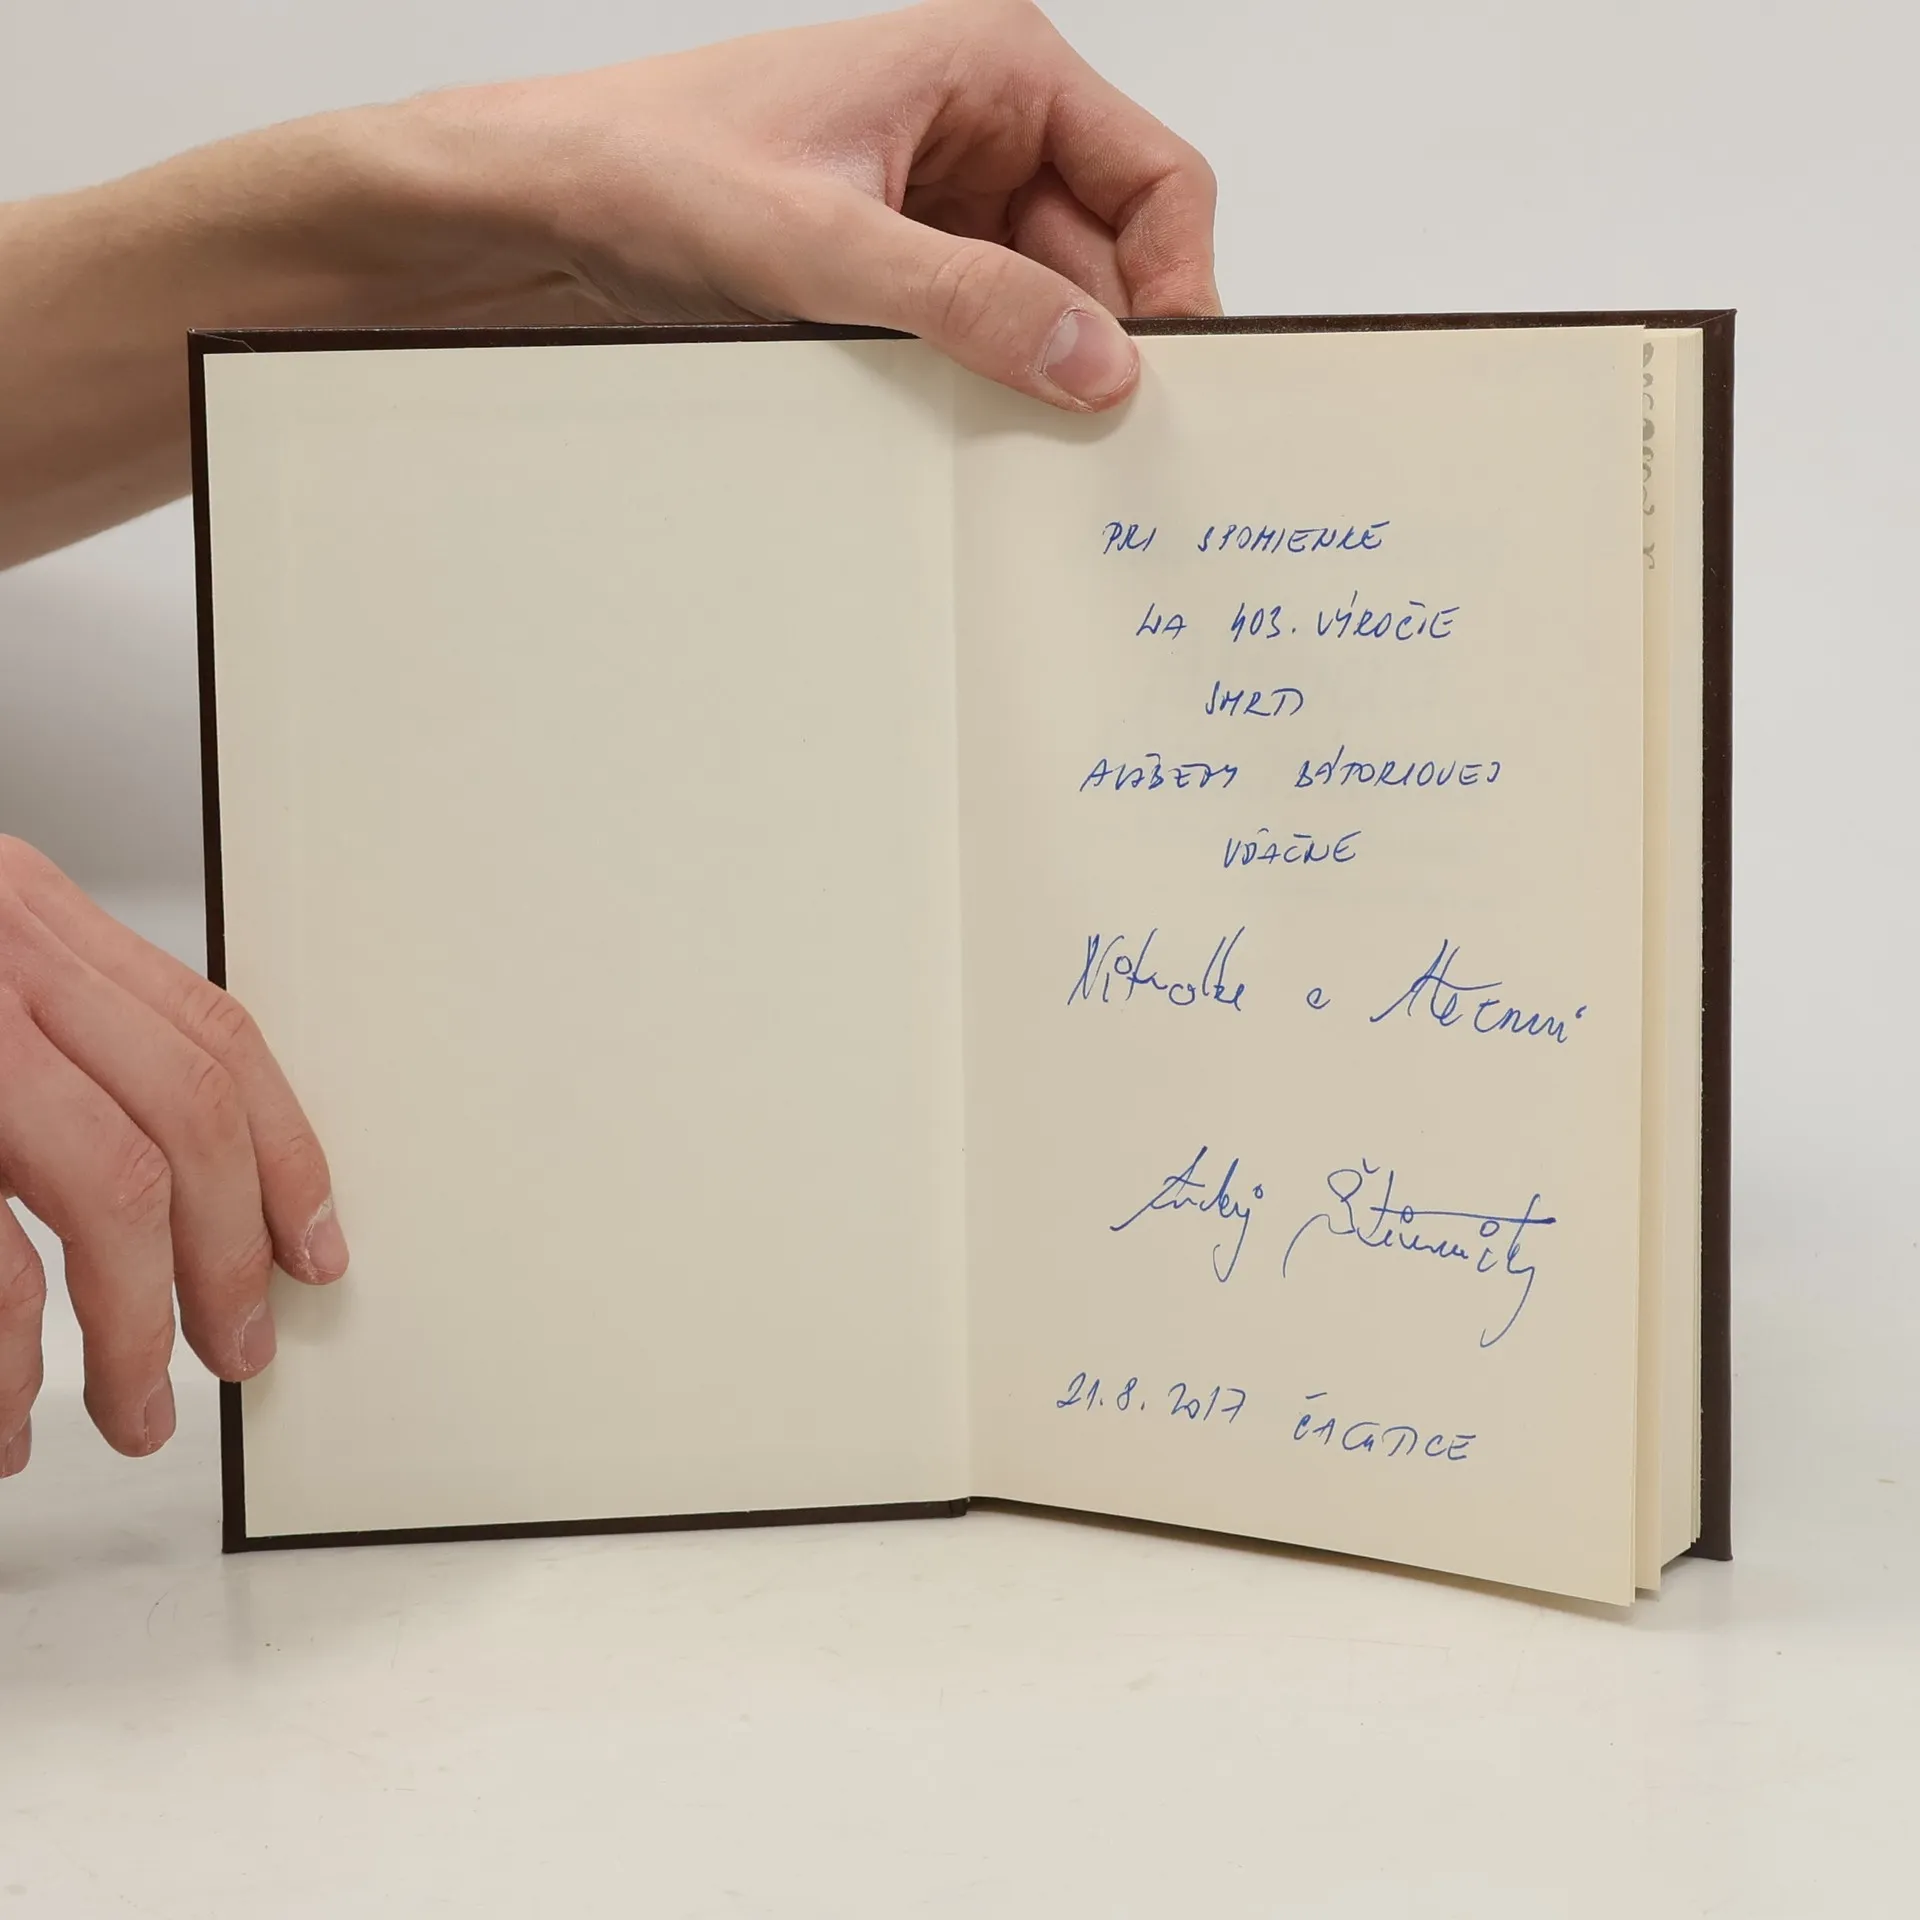 PRI SPOMIENKE
NA 403. VÝROČIE
SMRTI
ALŽBETY BÁTORIOVEJ
VĎAČNE
Andrej Štiavnický
21.8.2017 ČACHTICE